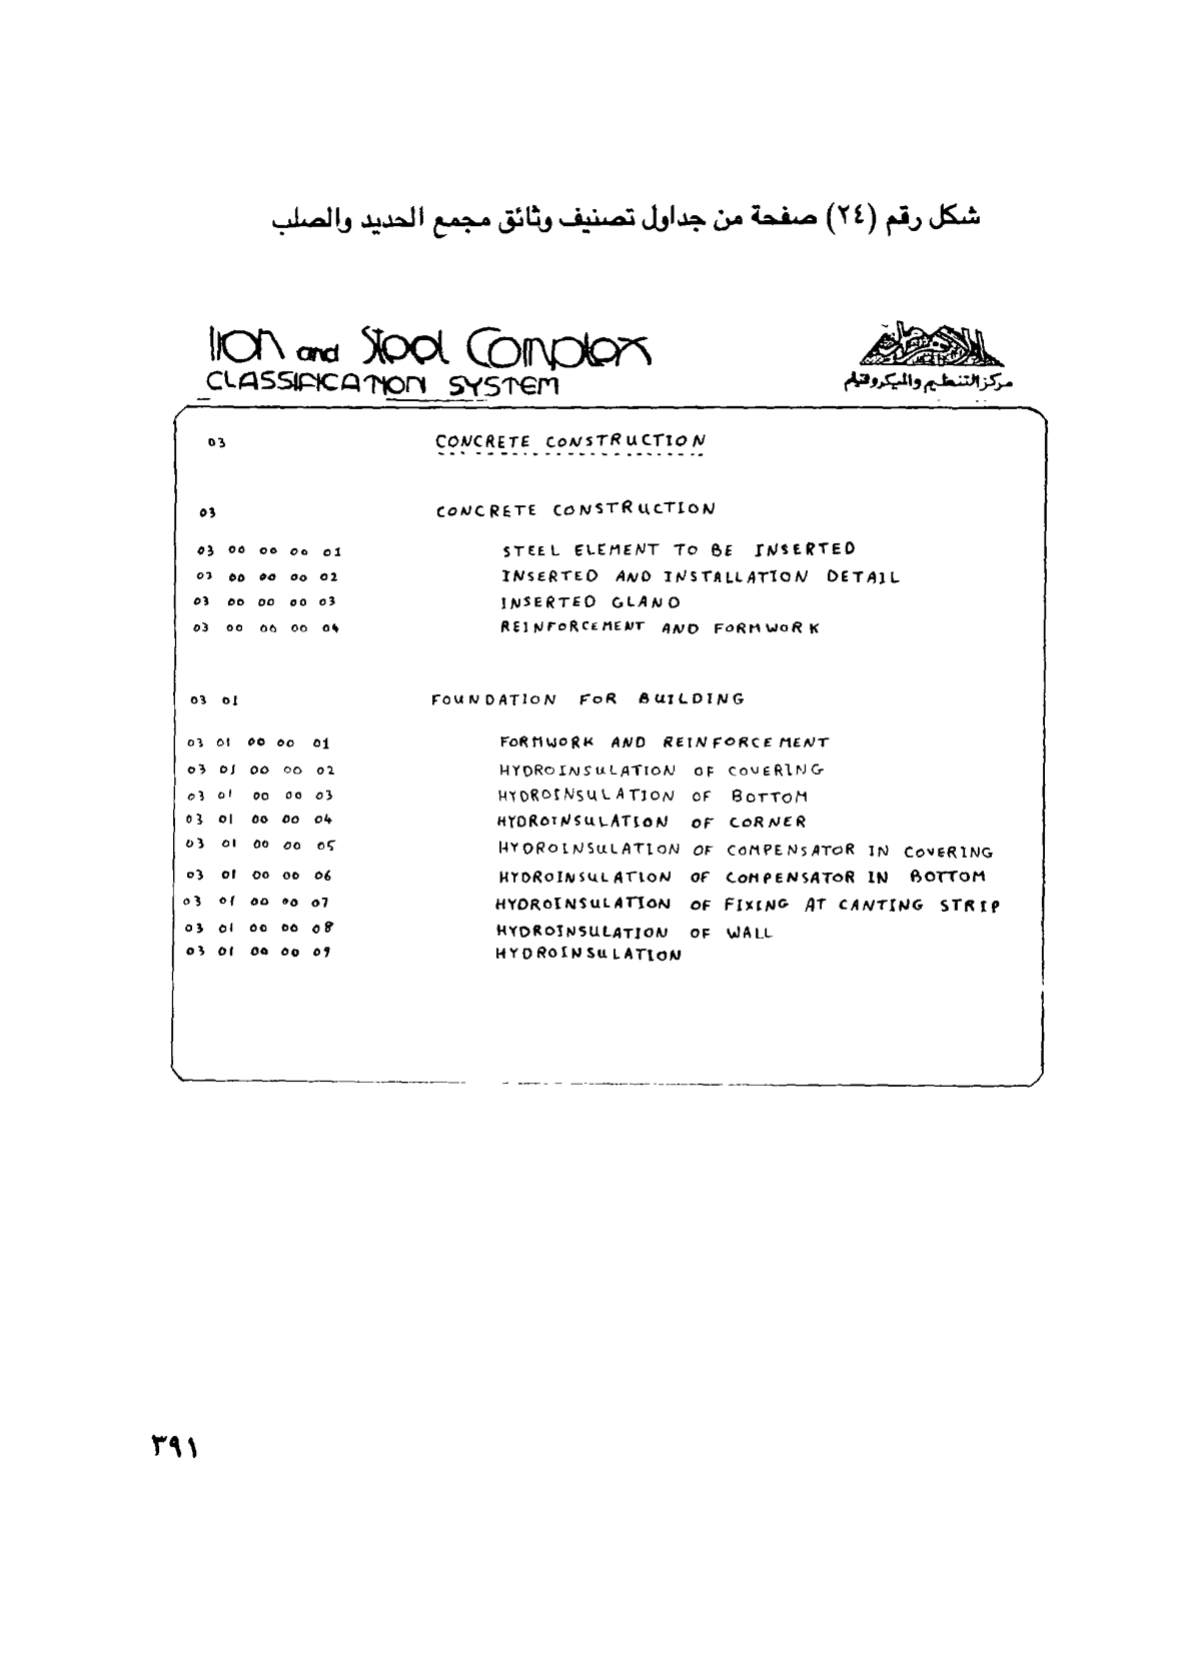 شكل رقم (٢٤) صفحة من جداول تصنيف وثائق مجمع الحديد والصلب
Iron and Steel Complex
CLASSIFICATION SYSTEM
مركز التنظيم والميكروفيلم
03 CONCRETE CONSTRUCTION
03 CONCRETE CONSTRUCTION
03 00 00 00 01 STEEL ELEMENT TO BE INSERTED
03 00 00 00 02 INSERTED AND INSTALLATION DETAIL
03 00 00 00 03 INSERTED GLAND
03 00 00 00 04 REINFORCEMENT AND FORMWORK
03 01 FOUNDATION FOR BUILDING
03 01 00 00 01 FORMWORK AND REINFORCEMENT
03 01 00 00 02 HYDROINSULATION OF COVERING
03 01 00 00 03 HYDROINSULATION OF BOTTOM
03 01 00 00 04 HYDROINSULATION OF CORNER
03 01 00 00 05 HYDROINSULATION OF COMPENSATOR IN COVERING
03 01 00 00 06 HYDROINSULATION OF COMPENSATOR IN BOTTOM
03 01 00 00 07 HYDROINSULATION OF FIXING AT CANTING STRIP
03 01 00 00 08 HYDROINSULATION OF WALL
03 01 00 00 09 HYDROINSULATION
٣٩١